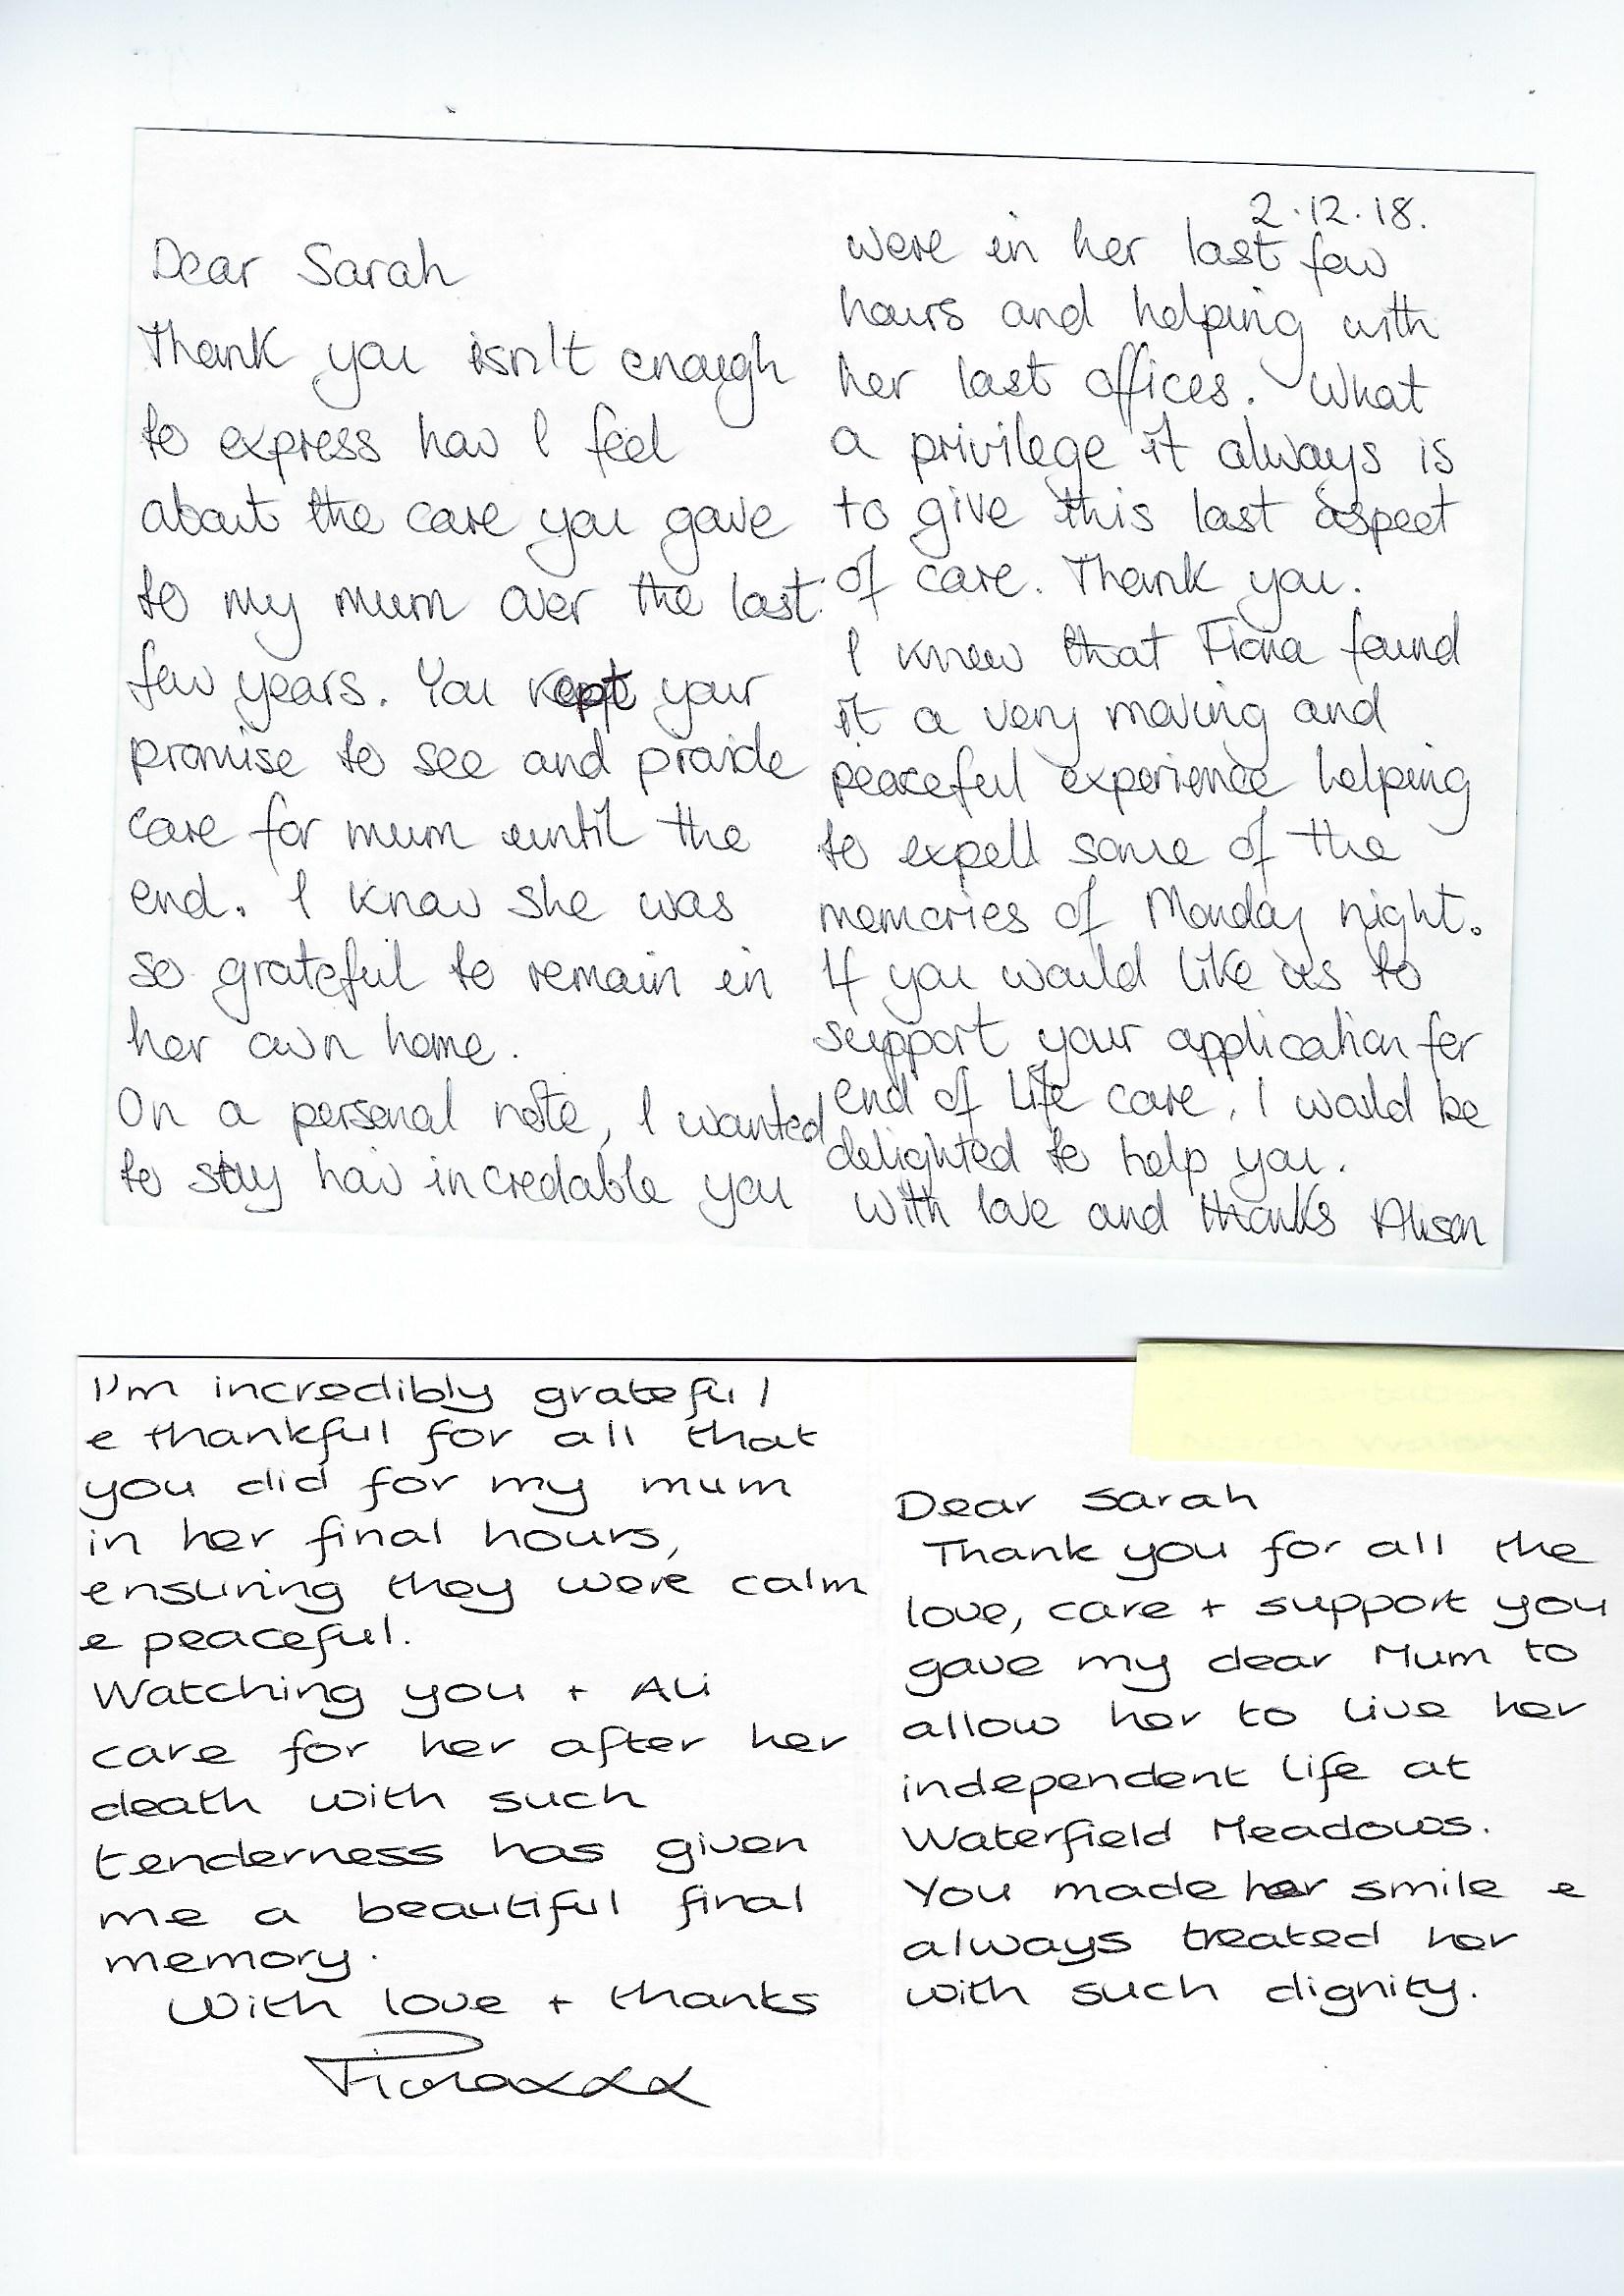 2.12.18.
Dear Sarah
Thank you isn't enough
to express how I feel
about the care you gave
to my mum over the last
few years. You kept your
promise to see and provide
care for mum until the
end. I know she was
so grateful to remain in
her own home.
On a personal note, I wanted
to say how incredable you
were in her last few
hours and helping with
her last offices. What
a privilege it always is
to give this last aspect
of care. Thank you.
I know that Fiona found
it a very moving and
peaceful experience helping
to expell some of the
memories of Monday night.
If you would like us to
support your application for
end of life care, I would be
delighted to help you.
With love and thanks Alison
Dear Sarah
Thank you for all the
love, care + support you
gave my dear Mum to
allow her to live her
independent life at
Waterfield Meadows.
You made her smile &
always treated her
with such dignity.
I'm incredibly grateful
& thankful for all that
you did for my mum
in her final hours,
ensuring they were calm
& peaceful.
Watching you + Ali
care for her after her
death with such
tenderness has given
me a beautiful final
memory.
With love + thanks
Fiona xxx